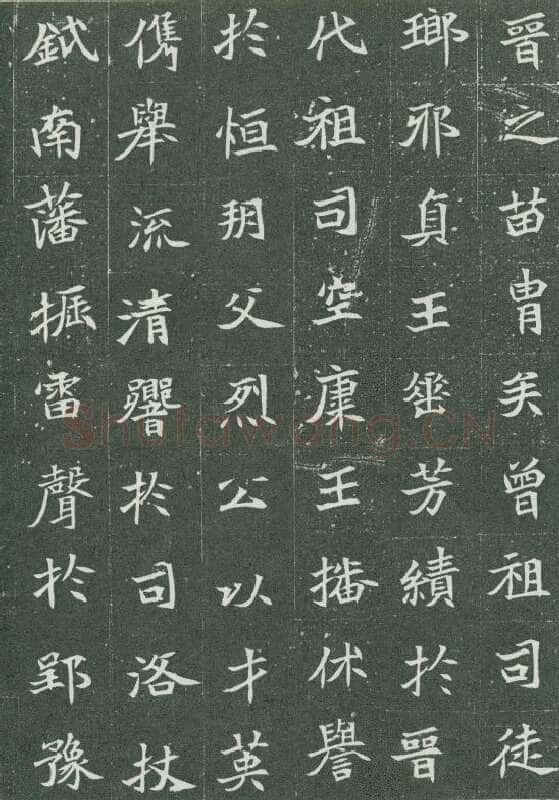 晉之苗胄矣曾祖司徒
瑯邪貞王垂芳績於晉
代祖司空康王播休譽
於恒朔父烈公以才英
儁舉流清響於司洛杖
鉞南藩振雷聲於郢豫
Shufawang.CN